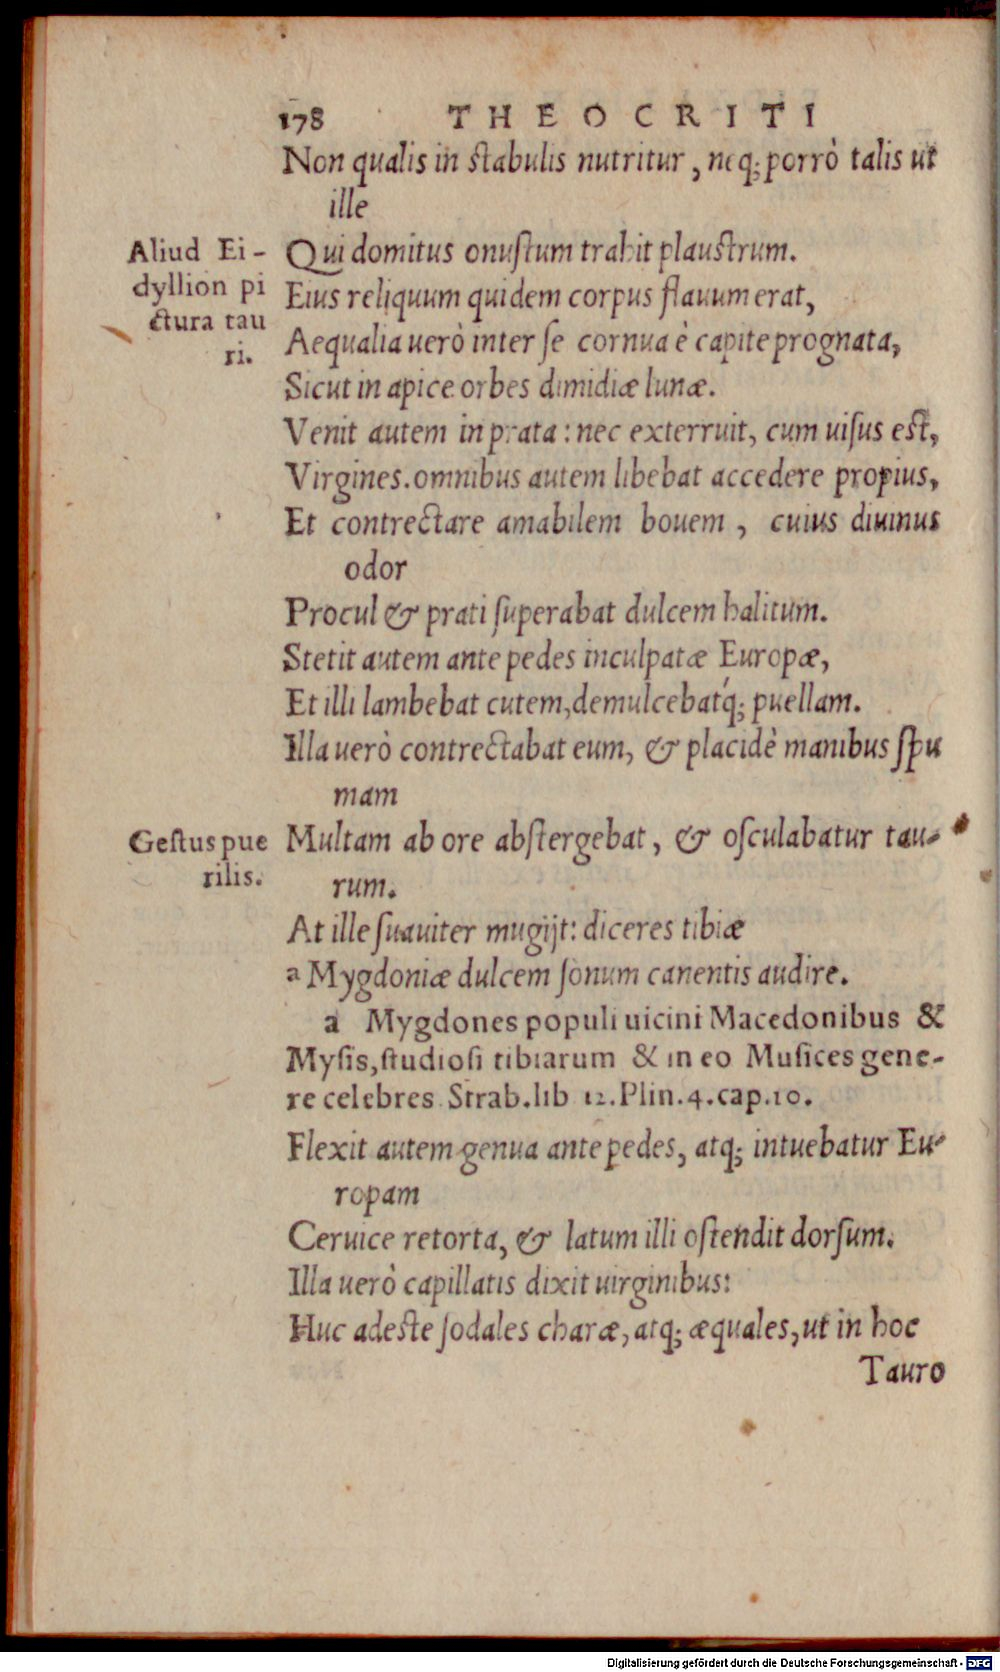 178 THEOCRITI
Non qualis in stabulis nutritur, neq; porrò talis ut
ille
Aliud Ei-
dyllion pi
ctura tau
ri.
Qui domitus onustum trahit plaustrum.
Eius reliquum quidem corpus flauum erat,
Aequalia uerò inter se cornua è capite prognata,
Sicut in apice orbes dimidiæ lunæ.
Venit autem in prata: nec exterruit, cum uisus est,
Virgines. omnibus autem libebat accedere propius,
Et contrectare amabilem bouem, cuius diuinus
odor
Procul & prati superabat dulcem halitum.
Stetit autem ante pedes inculpatæ Europæ,
Et illi lambebat cutem, demulcebatq́; puellam.
Illa uerò contrectabat eum, & placidè manibus spu
mam
Gestus pue
rilis.
Multam ab ore abstergebat, & osculabatur tau-
rum.
At ille suauiter mugijt: diceres tibiæ
a Mygdoniæ dulcem sonum canentis audire.
a Mygdones populi uicini Macedonibus &
Mysis, studiosi tibiarum & in eo Musices gene-
re celebres Strab. lib 12. Plin. 4. cap. 10.
Flexit autem genua ante pedes, atq; intuebatur Eu-
ropam
Ceruice retorta, & latum illi ostendit dorsum.
Illa uerò capillatis dixit uirginibus:
Huc adeste sodales charæ, atq; æquales, ut in hoc
Tauro
Digitalisierung gefördert durch die Deutsche Forschungsgemeinschaft - DFG